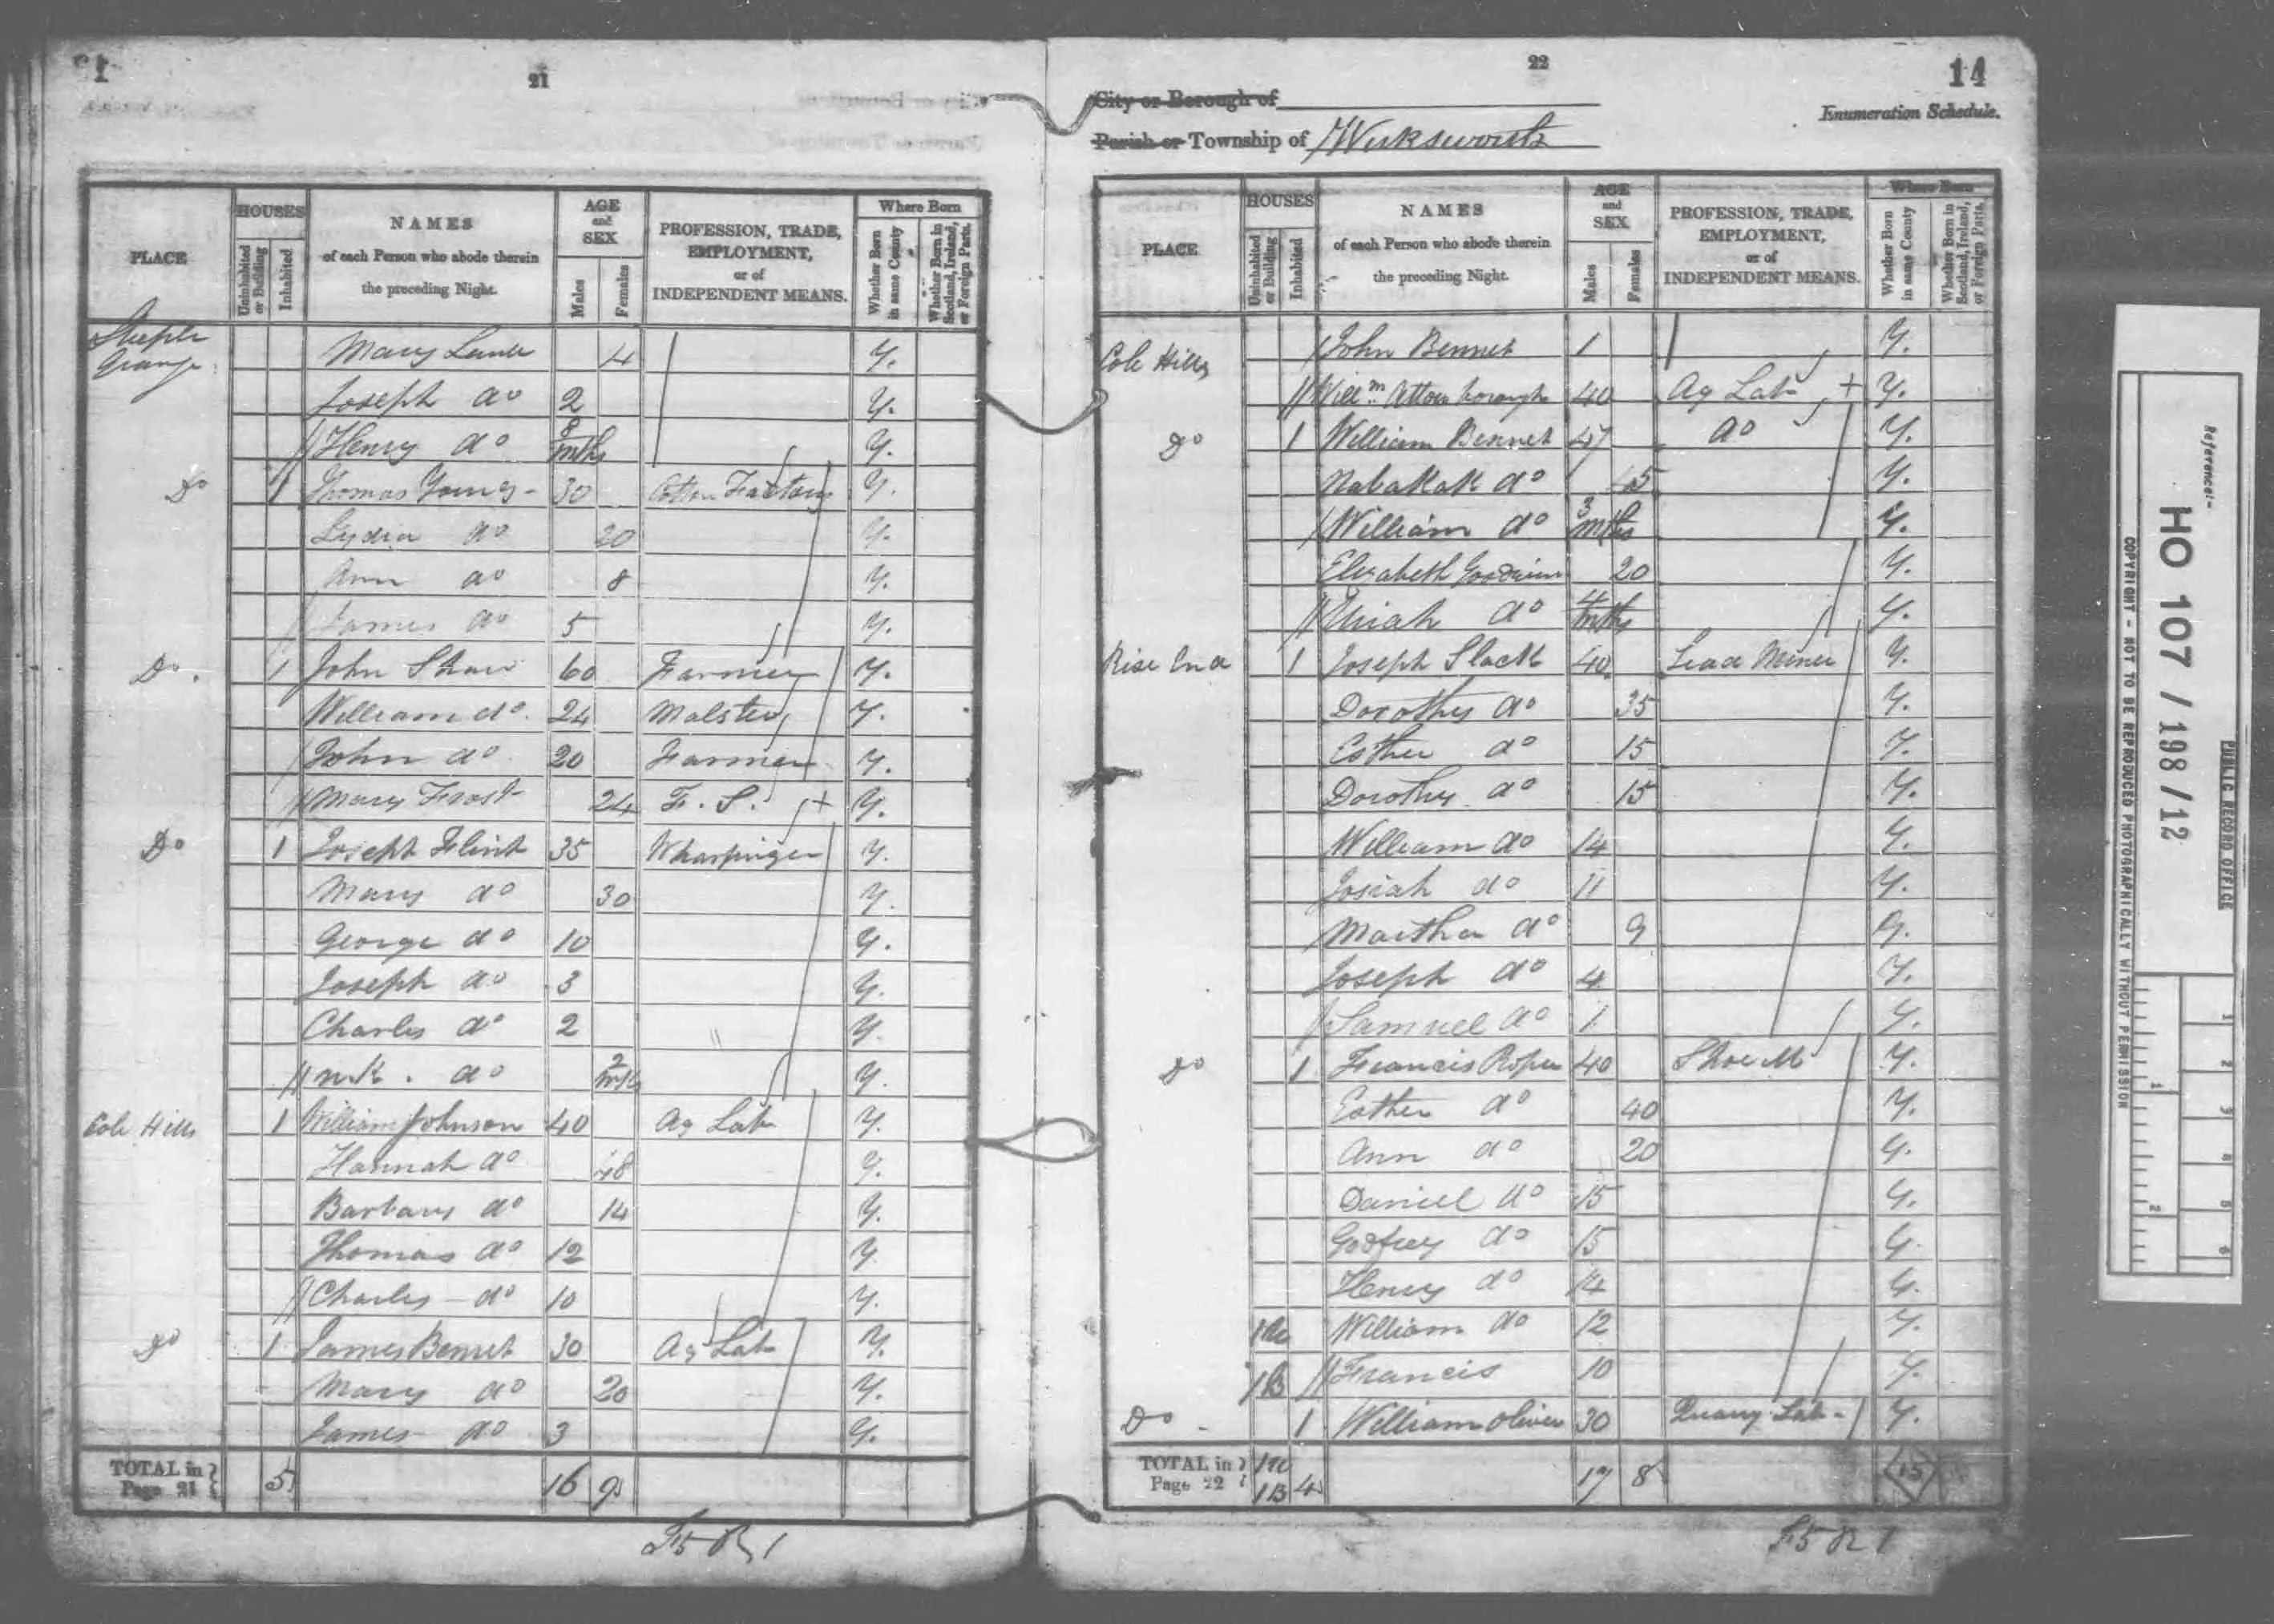 21
City or Borough of
Parish or Township of Wirksworth
22
14
Enumeration Schedule.
PLACE
HOUSES
Uninhabited or Building
Inhabited
NAMES
of each Person who abode therein
the preceding Night.
AGE
and
SEX
Males
Females
PROFESSION, TRADE,
EMPLOYMENT,
or of
INDEPENDENT MEANS.
Where Born
Whether Born in same County
Whether Born in Scotland, Ireland, or Foreign Parts.
Steeple
Grange
Mary 4 Y.
Joseph do 2 Y.
Henry do 8 mths Y.
Do 1 Thomas Young 30 Cotton Factory Y.
Lydia do 20 Y.
Ann do 8 Y.
James do 5 Y.
Do. 1 John Shaw 60 Farmer Y.
William do. 24 Malster Y.
John do 20 Farmer Y.
Mary Frost 24 F. S. + Y.
Do 1 Joseph Flint 35 Wharfinger Y.
Mary do 30 Y.
George do 10 Y.
Joseph do 3 Y.
Charles do 2 Y.
n.k. do 2 mths Y.
Cole Hills 1 William Johnson 40 Ag Lab Y.
Hannah do 48 Y.
Barbary do 14 Y.
Thomas do 12 Y
Charles do 10 Y.
Do 1 James Bennet 30 Ag Lab Y.
Mary do 20 Y.
James do 3 Y.
TOTAL in
Page 21 5 16 9
PLACE
HOUSES
Uninhabited or Building
Inhabited
NAMES
of each Person who abode therein
the preceding Night.
AGE
and
SEX
Males
Females
PROFESSION, TRADE,
EMPLOYMENT,
or of
INDEPENDENT MEANS.
Where Born
Whether Born in same County
Whether Born in Scotland, Ireland, or Foreign Parts.
Cole Hills John Bennet 1 Y.
Willm Attenborough 40 Ag Lab + Y.
Do 1 William Bennet 47 do Y.
do 45 Y.
William do 3 mths Y.
Elizabeth Goodwin 20 Y.
Uriah do 4 mths Y.
Rise End 1 Joseph Slack 40 Lead Miner Y.
Dorothy do 35 Y.
Esther do 15 Y.
Dorothy do 15 Y.
William do 14 Y.
Josiah do 11 Y.
Martha do 9 Y.
Joseph do 4 Y.
Samuel do 1 Y.
Do 1 Francis Roper 40 Shoe M Y.
Esther do 40 Y.
Ann do 20 Y.
Daniel do 15 Y.
Godfrey do 15 Y.
Henry do 14 Y.
William do 12 Y.
1 B Francis 10 Y.
Do 1 William Oliver 30 Quarry Lab Y.
TOTAL in
Page 22 1 B 4 17 8 15
Reference:-
HO 107 / 198 / 12
PUBLIC RECORD OFFICE
COPYRIGHT - NOT TO BE REPRODUCED PHOTOGRAPHICALLY WITHOUT PERMISSION